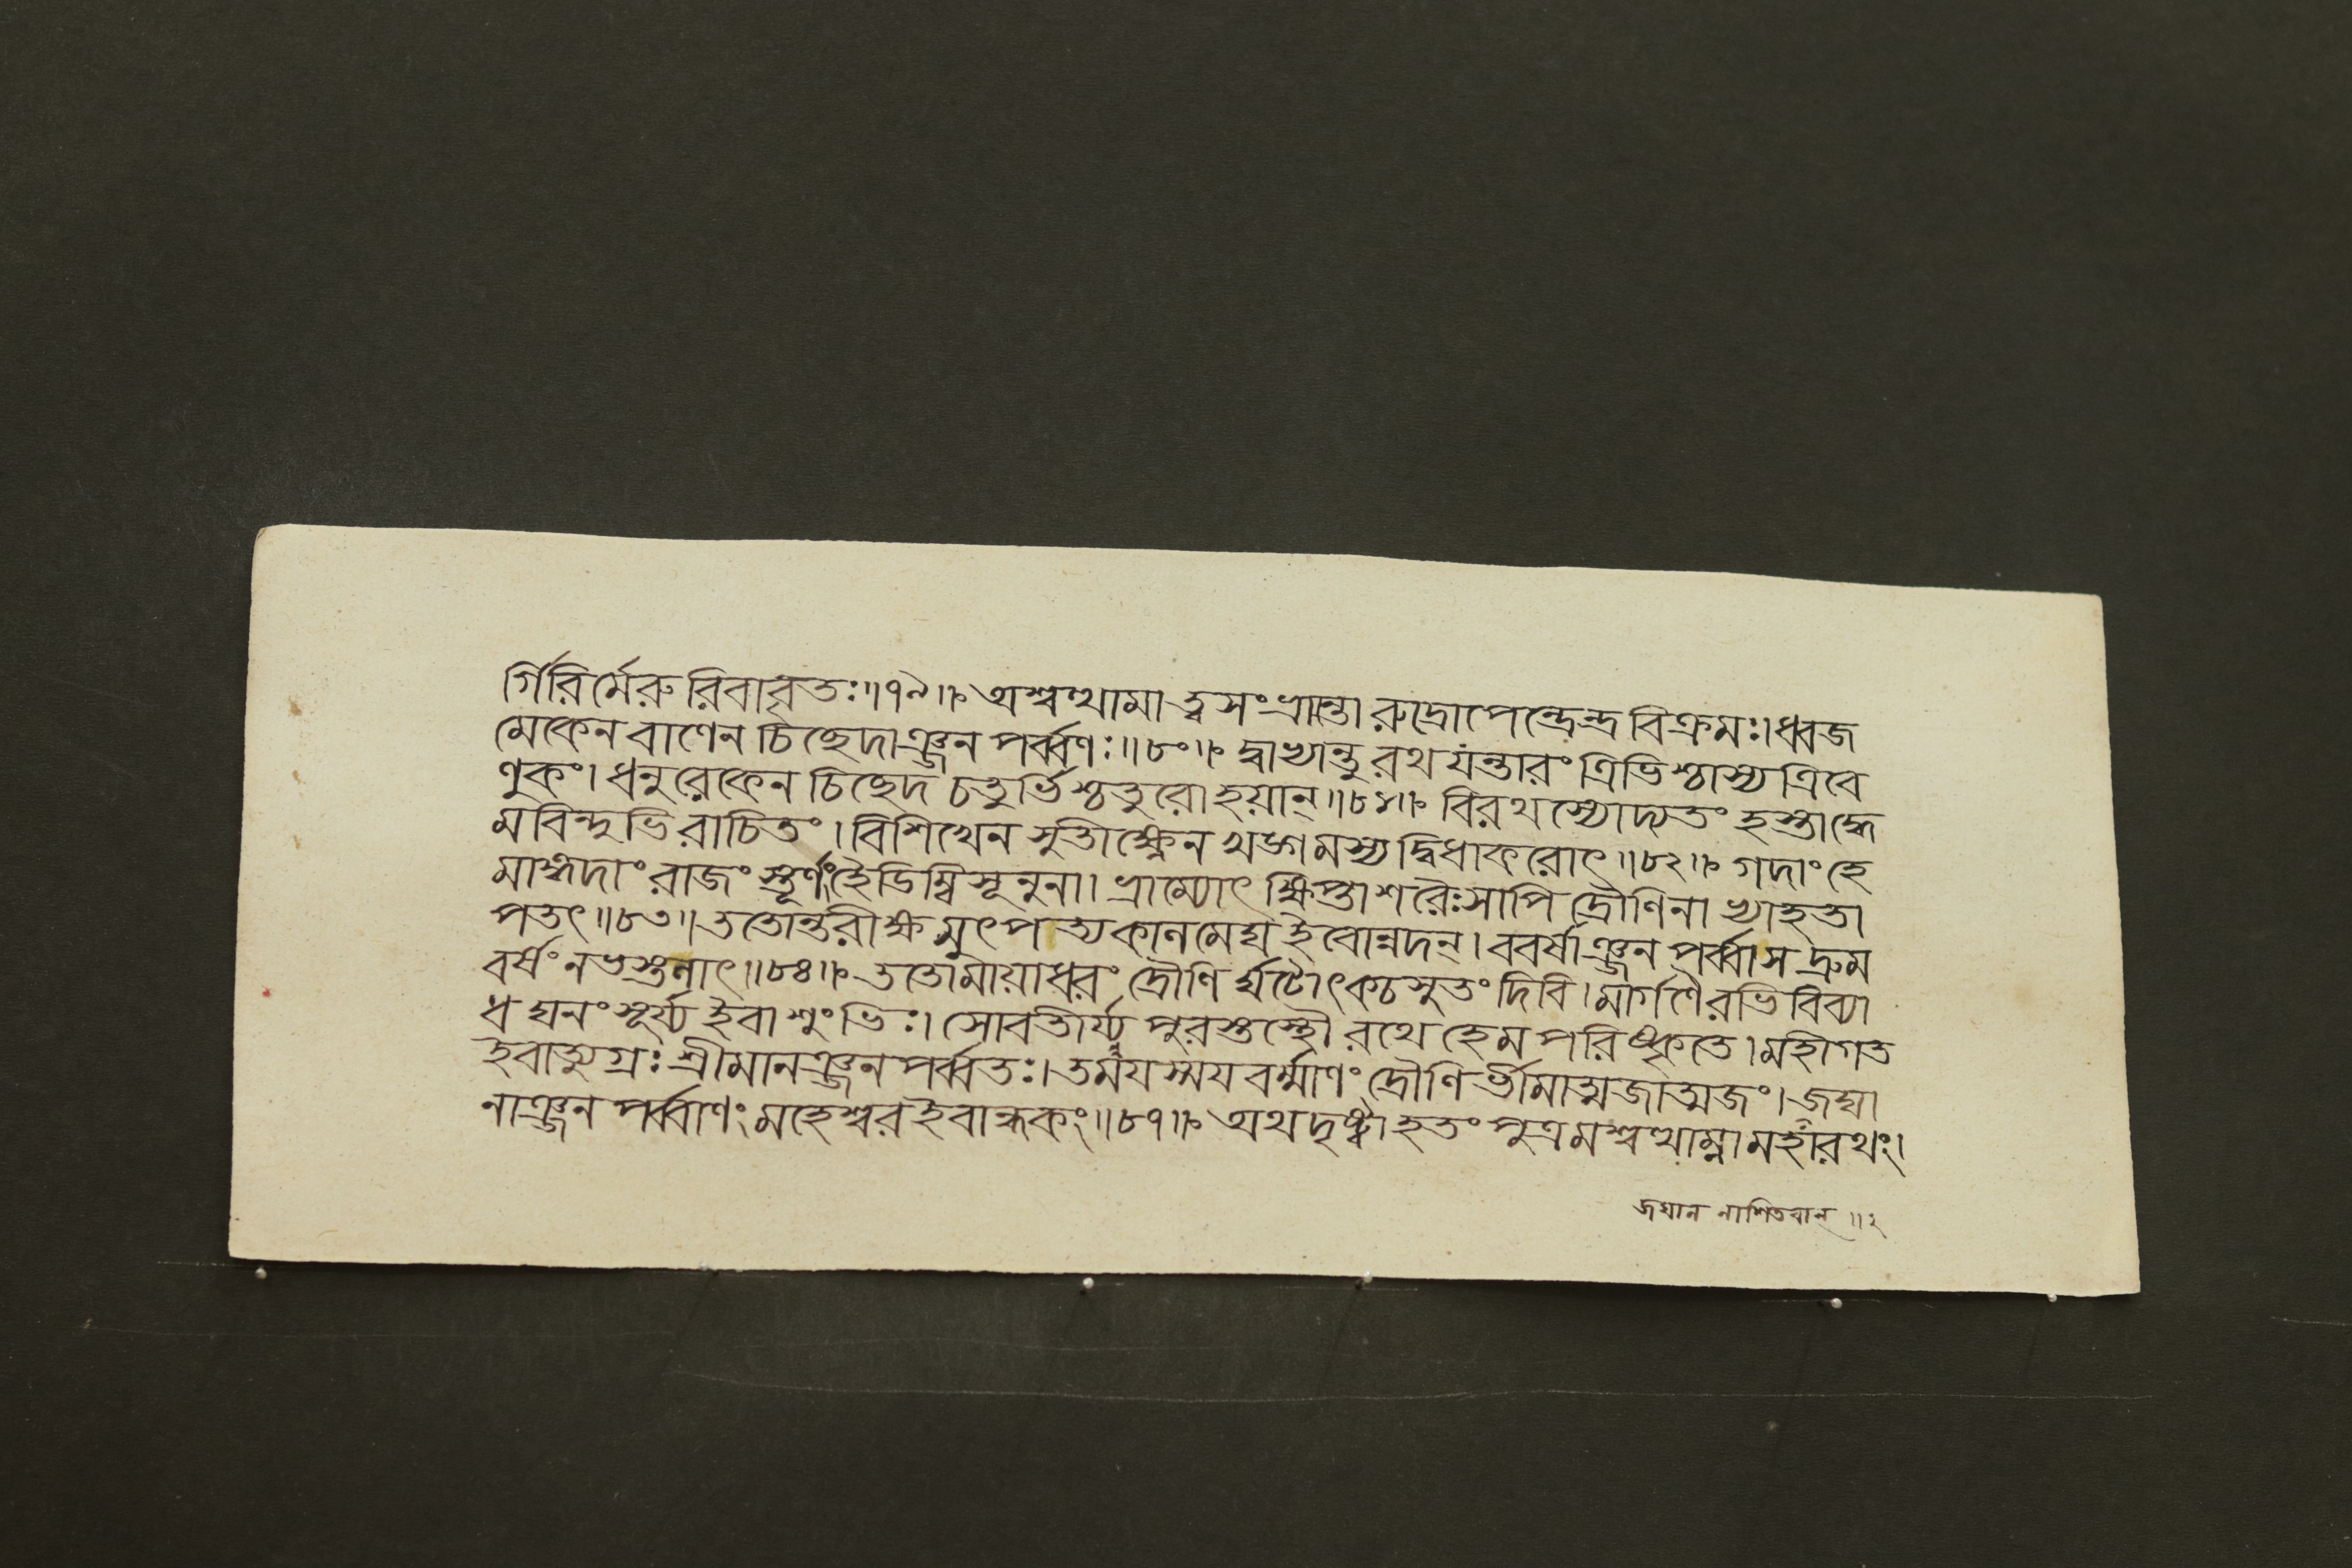 র্গিরির্মেরুরিবাবৃতঃ॥৭৯॥ অশ্বত্থামাত্বসংভ্রান্তা রুদ্রোপেন্দ্রেন্দ্রবিক্রমঃ।ধ্বজ
মেকেন বাণেন চিচ্ছেদাঞ্জন পর্ব্বণঃ॥৮০॥ দ্বাভ্যান্তু রথ যন্তারং ত্রিভিশ্চাস্য ত্রিবে
ণুকং। ধনুরেকেন চিচ্ছেদ চতুর্ভিশ্চতুরো হয়ান্॥৮১॥ বিরথস্যোদ্যতং হস্তাদ্ধে
মবিন্দুভিরাচিতং। বিশিখেন সুতীক্ষ্ণেন খড়্গমস্য দ্বিধাকরোৎ॥৮২॥ গদাং হে
মাঙ্গদাং রাজং স্তূর্ণং হৈডিম্বিসূনুনা। ভ্রাম্যোৎ ক্ষিপ্তা শরৈঃ সাপি দ্রৌণিনাভ্যাহতা
পতৎ॥৮৩॥ ততোন্তরীক্ষমুৎপত্য কালমেঘ ইবোন্নদন্। ববর্ষাঞ্জন পর্ব্বা স দ্রুম
বর্ষং নভস্তলাৎ॥৮৪॥ ততো মায়াধরং দ্রৌণি র্ঘটোৎকচসুতং দিবি। মার্গণৈরভি বিব্যা
ধ ঘনং সূর্য্য ইবাংশুভিঃ। সোবতীর্য্য পুরস্তস্থৌ রথে হেম পরিষ্কৃতে। মহীগত
ইবাত্যুগ্রঃ শ্রীমানঞ্জন পর্ব্বতঃ। তময়স্ময়বর্ম্মাণং দ্রৌণি র্ভীমাত্মজাত্মজং। জঘা
নাঞ্জন পর্ব্বাণং মহেশ্বর ইবান্ধকং॥৮৭॥ অথ দৃষ্ট্বা হতং পুত্রমশ্বত্থাম্না মহারথং।
জঘান নাশিতবান্॥২